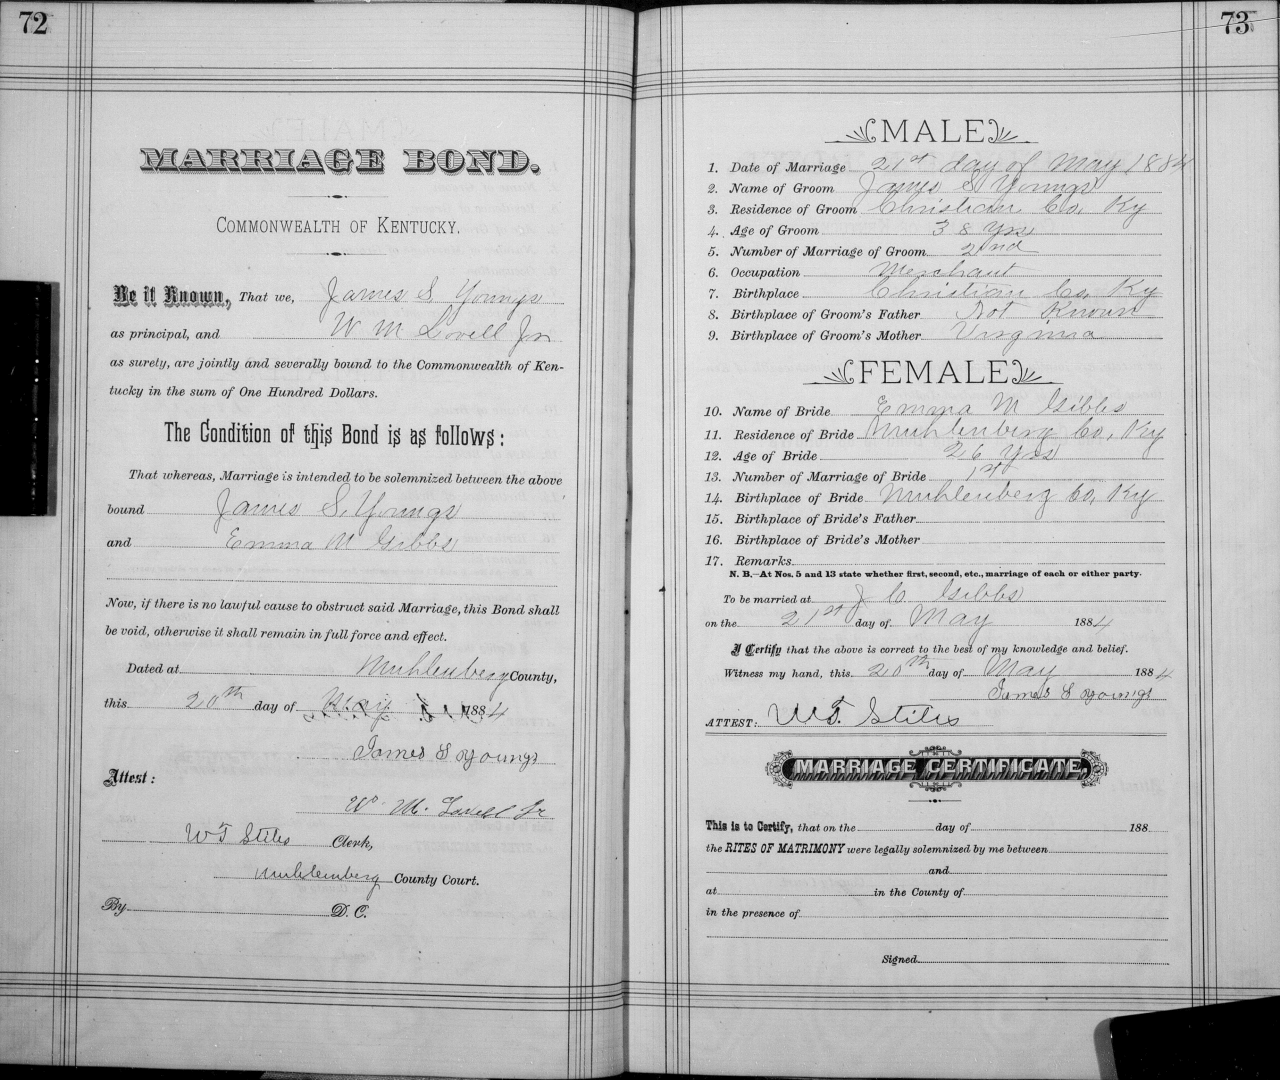 72
MARRIAGE BOND.
COMMONWEALTH OF KENTUCKY.
Be it Known, That we, James S. Youngs
as principal, and W M Lovell Jr
as surety, are jointly and severally bound to the Commonwealth of Ken-
tucky in the sum of One Hundred Dollars.
The Condition of this Bond is as follows:
That whereas, Marriage is intended to be solemnized between the above
bound James S. Youngs
and Emma M Gibbs
Now, if there is no lawful cause to obstruct said Marriage, this Bond shall
be void, otherwise it shall remain in full force and effect.
Dated at Muhlenberg County,
this 20th day of May 1884
James S Youngs
Attest:
W. M. Lovell Jr
W T Stiles Clerk,
Muhlenberg County Court.
By D. C.
73
MALE
1. Date of Marriage 21st day of May 1884
2. Name of Groom James S Youngs
3. Residence of Groom Christian Co, Ky
4. Age of Groom 38 Yrs
5. Number of Marriage of Groom 2nd
6. Occupation Merchant
7. Birthplace Christian Co, Ky
8. Birthplace of Groom's Father Not Known
9. Birthplace of Groom's Mother Virginia
FEMALE
10. Name of Bride Emma M Gibbs
11. Residence of Bride Muhlenberg Co, Ky
12. Age of Bride 26 Yrs
13. Number of Marriage of Bride 1st
14. Birthplace of Bride Muhlenberg Co, Ky
15. Birthplace of Bride's Father
16. Birthplace of Bride's Mother
17. Remarks
N. B.—At Nos. 5 and 13 state whether first, second, etc., marriage of each or either party.
To be married at J C Gibbs
on the 21st day of May 1884
I Certify that the above is correct to the best of my knowledge and belief.
Witness my hand, this 20th day of May 1884
James S Youngs
ATTEST: W T. Stiles
MARRIAGE CERTIFICATE,
This is to Certify, that on the day of 188
the RITES OF MATRIMONY were legally solemnized by me between
and
at in the County of
in the presence of
Signed